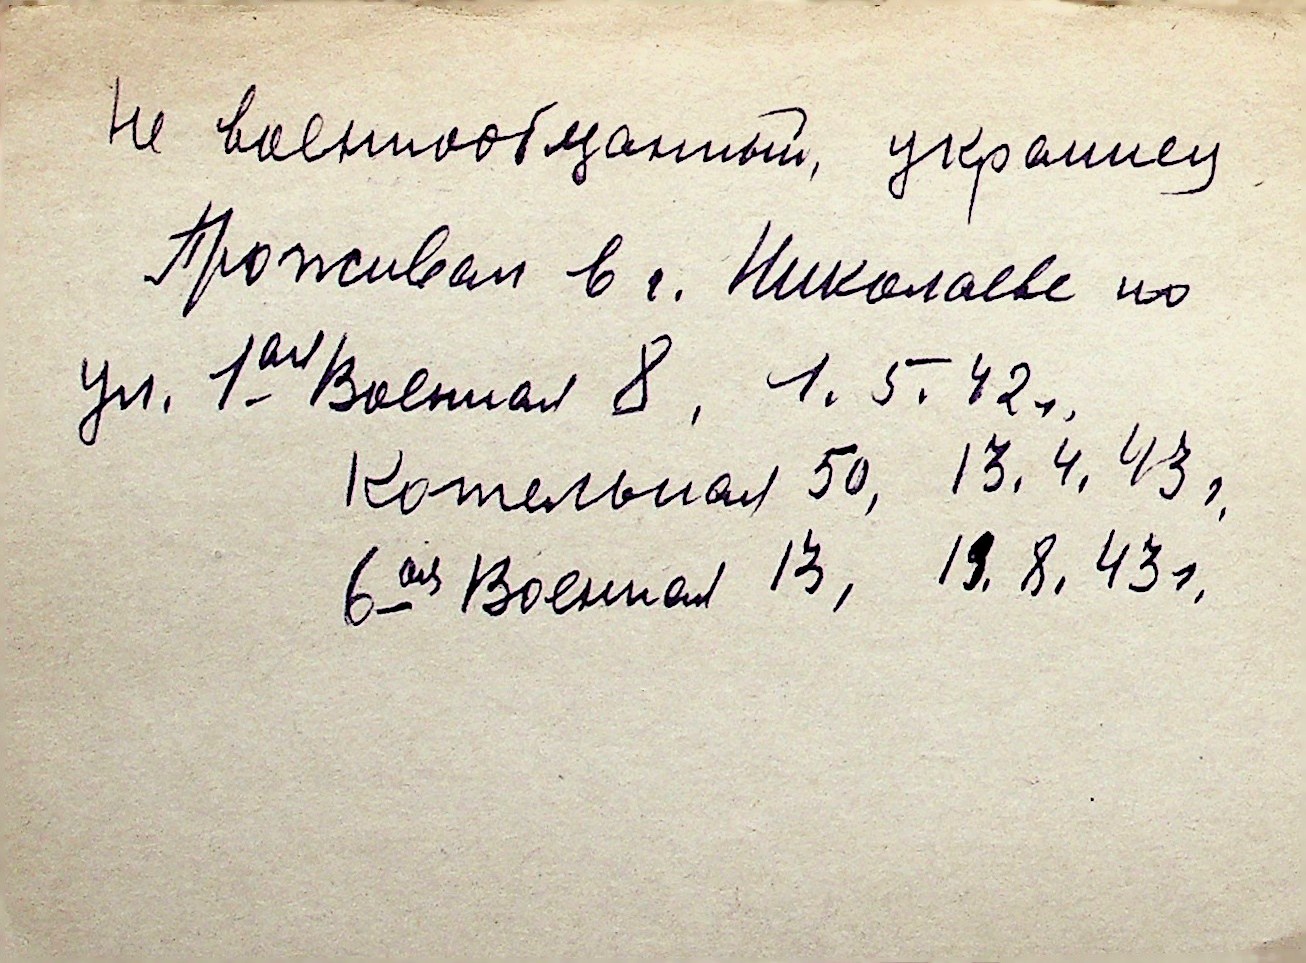 Не военнообязанный, украинец
Проживал в г. Николаеве по
ул. 1-ая Военная 8, 1.5.42г.
Котельная 50, 13.4.43г.
6-ая Военная 13, 19.8.43г.